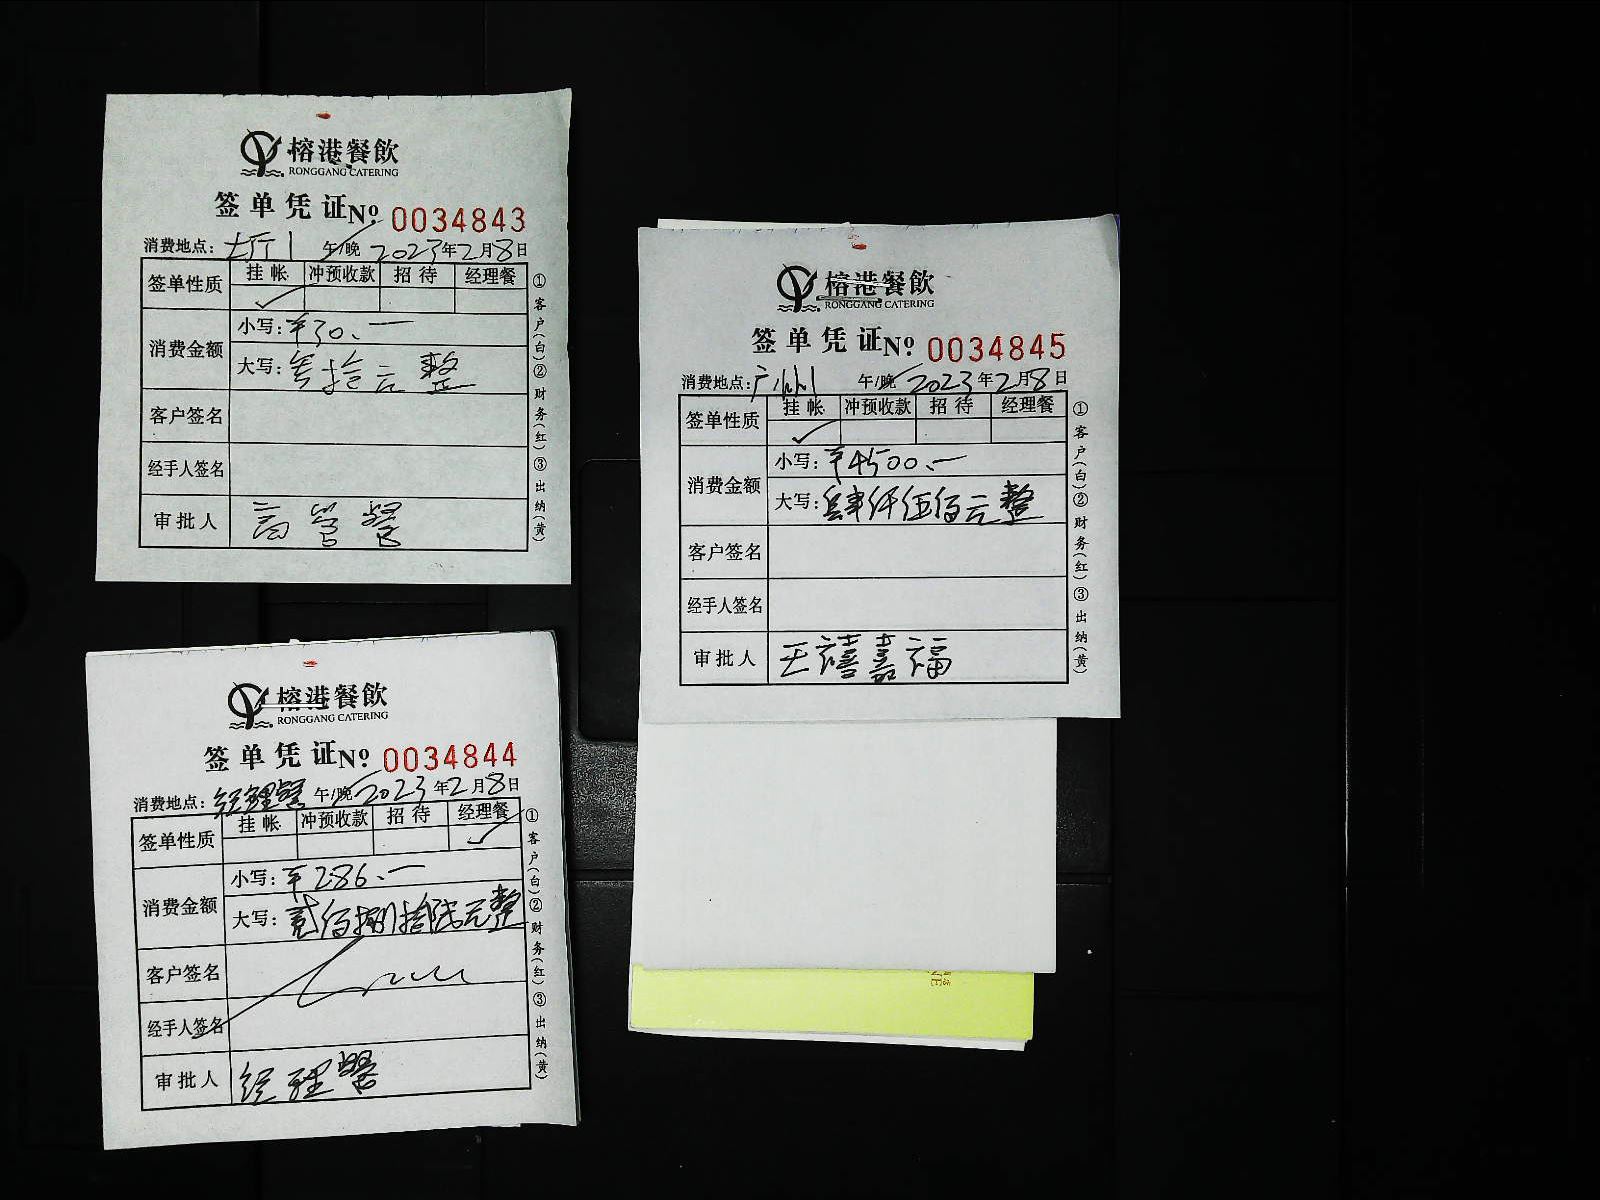 榕港餐飲
RONGGANG CATERING
签单凭证 No 0034843
消费地点: 大厅1 午/晚 2023年2月8日
签单性质 挂帐 冲预收款 招待 经理餐
消费金额 小写: ¥30.一
大写: 叁拾元整
客户签名
经手人签名
审批人 高管餐
①客户(白)②财务(红)③出纳(黄)
榕港餐飲
RONGGANG CATERING
签单凭证 No 0034844
消费地点: 经理餐 午/晚 2023年2月8日
签单性质 挂帐 冲预收款 招待 经理餐
消费金额 小写: ¥286.一
大写: 贰佰捌拾陆元整
客户签名
经手人签名
审批人 经理餐
①客户(白)②财务(红)③出纳(黄)
榕港餐飲
RONGGANG CATERING
签单凭证 No 0034845
消费地点: 广州 午/晚 2023年2月8日
签单性质 挂帐 冲预收款 招待 经理餐
消费金额 小写: ¥4500.一
大写: 肆仟伍佰元整
客户签名
经手人签名
审批人 王禧嘉福
①客户(白)②财务(红)③出纳(黄)